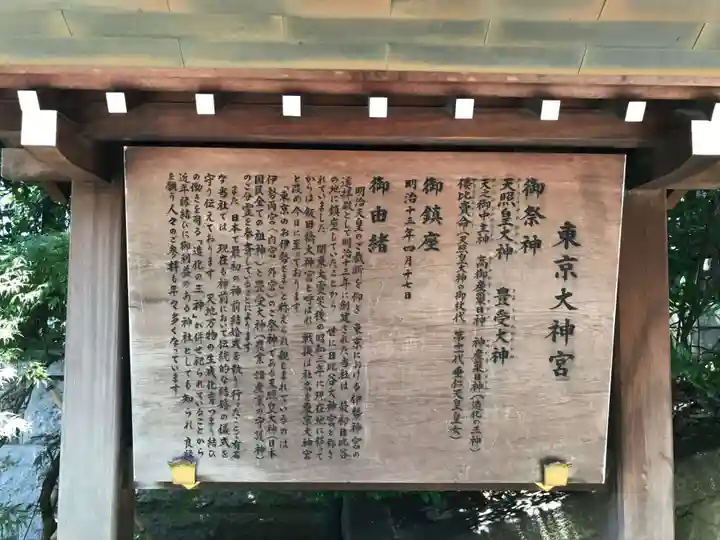 東京大神宮
御祭神
天照皇大神　豊受大神
天之御中主神　高御産巣日神　神産巣日神（造化の三神）
倭比賣命（天照皇大神の御杖代　第十一代　垂仁天皇皇女）
御鎮座
明治十三年四月十七日
御由緒
明治天皇のご裁断を仰ぎ　東京における伊勢神宮の
遥拝殿として明治十三年に創建された当社は　最初日比谷
の地に鎮座していたことから　世に日比谷大神宮と称さ
れていた　関東大震災後の昭和三年に現在地に移って
からは　飯田橋大神宮と呼ばれ　戦後は社名を東京大神宮
と改め今日に至っております
「東京のお伊勢さま」と称えられ親しまれているのは
伊勢両宮（内宮・外宮）のご祭神である天照皇大神（日本
国民全ての祖神）と豊受大神（農業・諸産業の守護神）
のご分霊を奉斎していることによります
また　日本で最初の神前結婚式を執り行ったことで有名
な当社では　現在も神前において伝統的な結婚の儀式を
守り伝えております　天地万物の生成化育つまり結び
の働きを司る「造化の三神」が併せ祀られていることから
近年縁結びに御利益のある神社としても知られ　良縁
を願う人々のご参拝も年々多くなっています